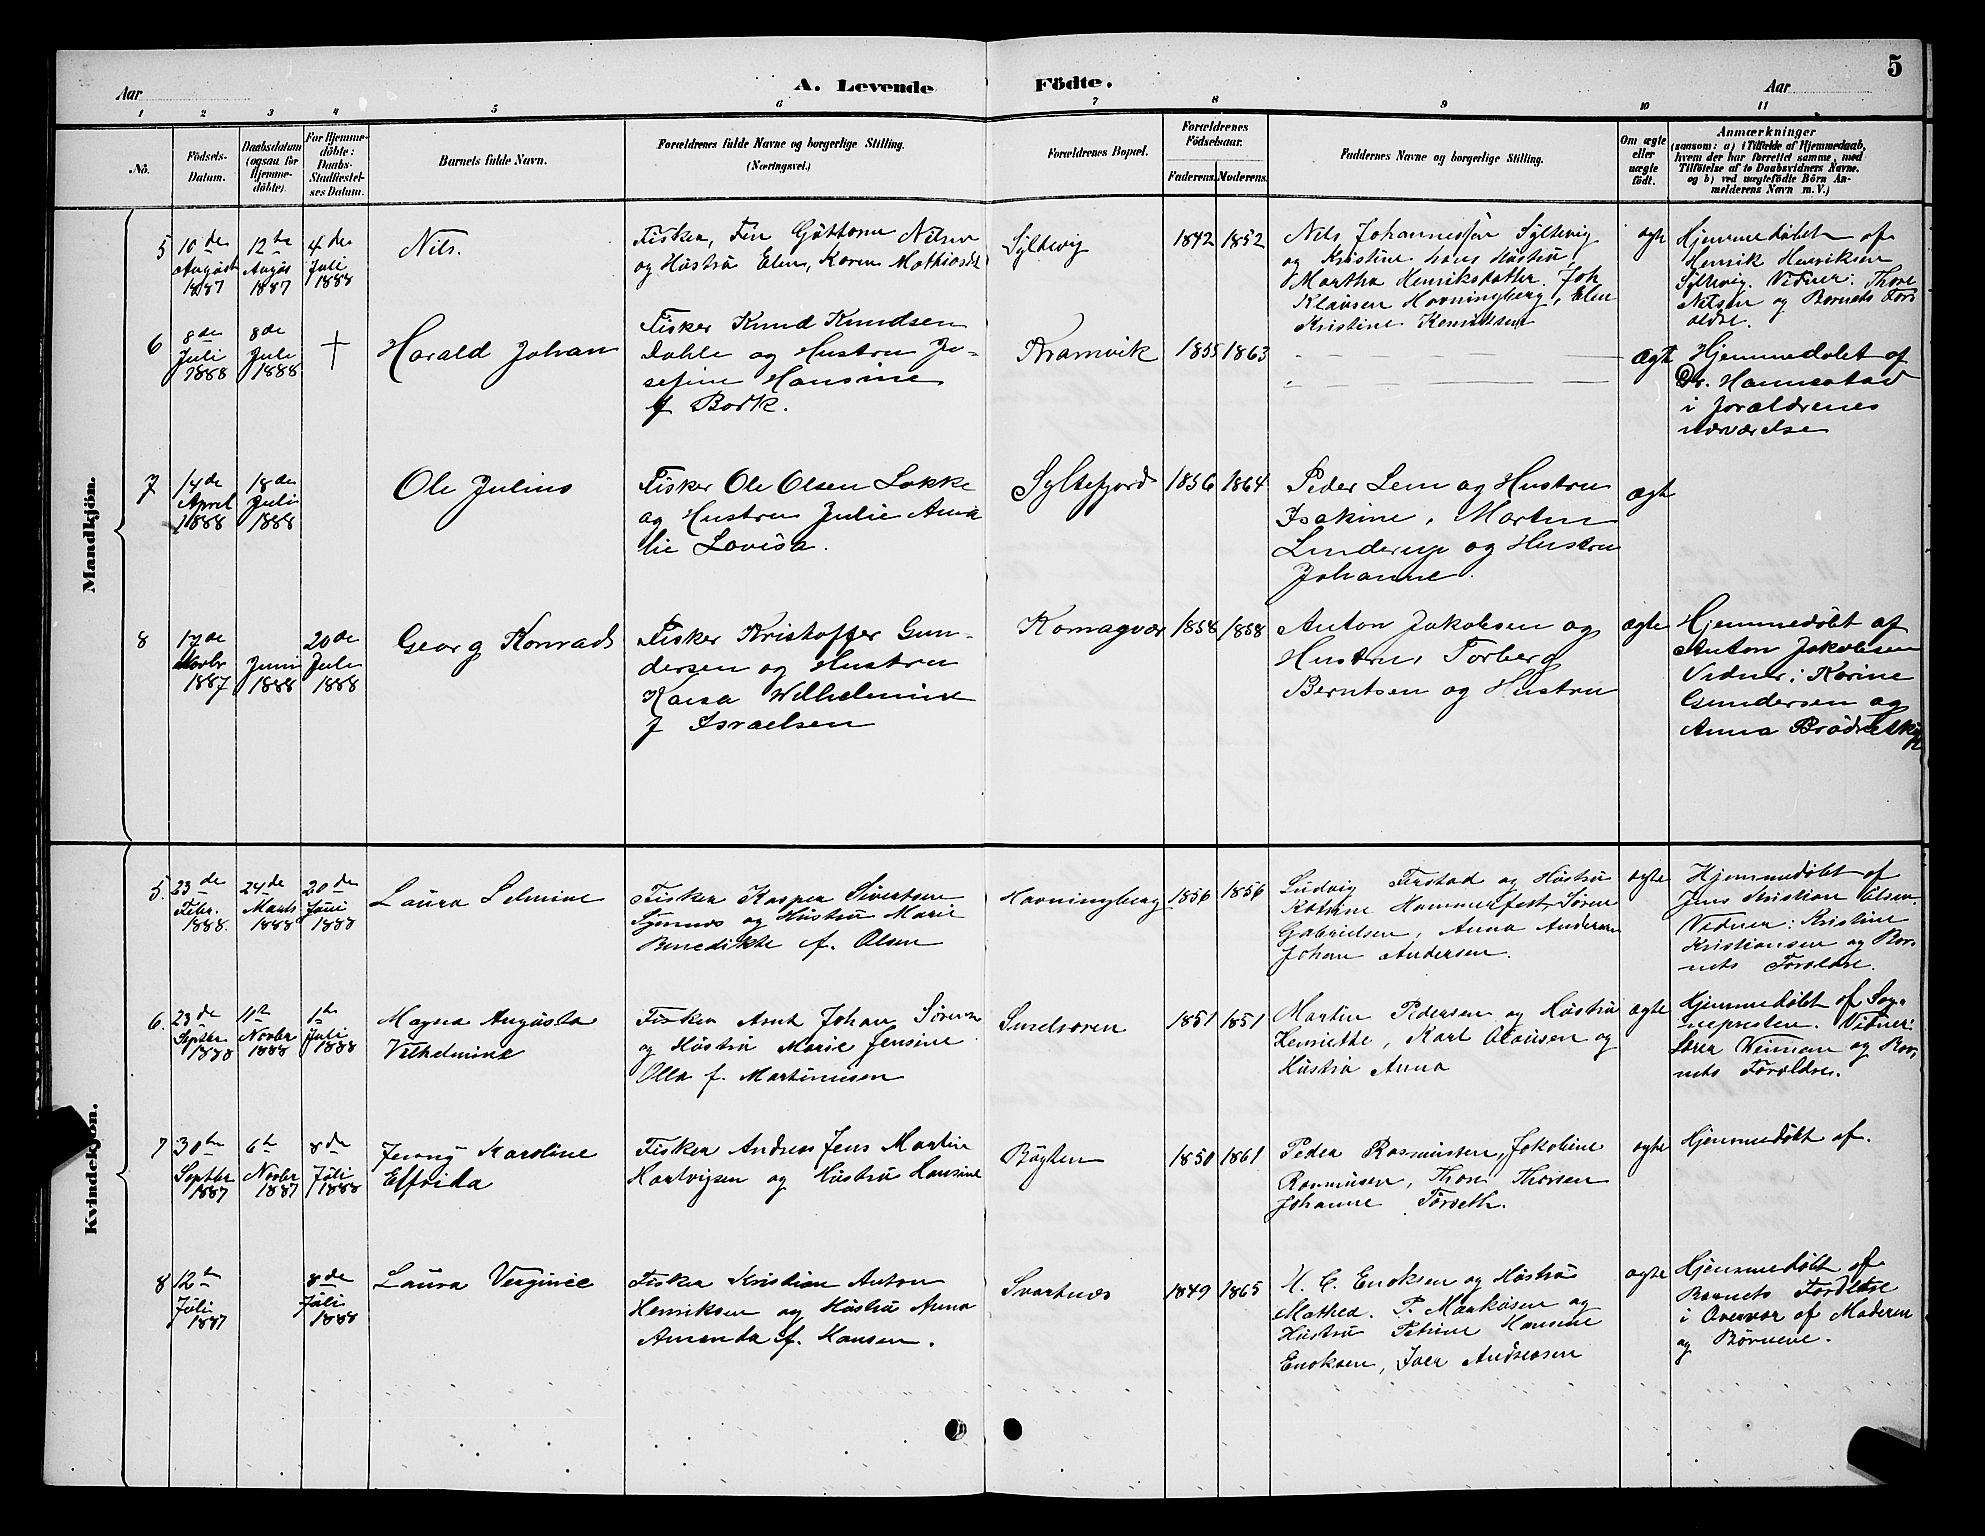 5
Aar
A. Levende
Födte.
Aar
1 2 3 4 5 6 7 8 9 10 11
No.
Födsels-
Datum.
Daabsdatum
(ogsaa for
Hjemme-
döbte).
For Hjemme-
döbte:
Daabs-
Stadfæstel-
ses Datum.
Barnets fulde Navn.
Forældrenes fulde Navne og borgerlige Stilling.
(Næringsvei.)
Forældrenes Bopæl.
Forældrenes
Födselsaar.
Faderens. Moderens.
Faddernes Navne og borgerlige Stilling.
Om ægte
eller
uægte
födt.
Anmærkninger
(saasom: a) i Tilfælde af Hjemmedaab,
hvem der har forrettet samme, med
Tilföielse af to Daabsvidners Navne,
og b) ved uægtefödte Börn An-
melderens Navn m. V.)
Mandkjön.
5
10de
August
1887
12te
Augus
1887
4de
Juli
1888
Nils.
Fisker, Fin Guttorm Nilsen
og Hustru Elen, Karen Mathisdt
Syltevig
1842 1852
Nils Johannessen Syltevig
og Kristine hans Hustru,
Martha Henriksdatter. Joh
Klausen Havningberg, Elen
Kristine
ægte
Hjemmedøbt af
Henrik Henriksen
Syltevig. Vidner: Thore
Nilsen og Barnets For
ældre.
6
8de
Juli
1888
8de
Juli
1888
+
Harald Johan
Fisker Knud Knudsen
Dahle og Hustru Jo-
sefine Hansine
f Bark.
Kramvik
1855 1863
ægt
Hjemmedøbt af
Dr. Hannestad
i forældrenes
nærværelse
7
14de
April
1888
18de
Juli
1888
Ole Julius
Fisker Ole Olsen Løkke
og Hustru Julie Ama
lie Lovisa.
Syltefjord
1856 1864
Peder Lem og Hustru
Isakine, Martin
Linderup og Hustru
Johanne.
ægt
8
17de
Novbr
1887
Juni
1888
20de
Juli
1888
Georg Konrad
Fisker Kristoffer Gun-
dersen og Hustru
Kaisa Wilhelmine
f Israelsen
Komagvær
1858 1858
Anton Jakobsen og
Hustru, Torberg
Berntsen og Hustru
ægte
Hjemmedøbt af
Anton Jakobsen
Vidner: Karine
Gundersen og
Anna
Kvindekjön.
5.
23de
Febr.
1888.
24de
Marts
1888
20de
Juni
1888
Laura Selmine
Fisker Kasper Sivertsen
og Hustru Marie
Benedikte f. Olsen
Havningberg
1856 1856
Ludvig Firstad og Hustru
Katrine Hammerfest, Søren
Gabrielsen, Anna Andersen
Johan Andersen.
ægte
Hjemmedøbt af
Jens Kristian Olsen.
Vidner: Kristine
Kristiansen og Bar-
nets Forældre.
6.
23de
Septbr
1888
11te
Novbr
1888
1te
Juli
1888
Magna Augusta
Vilhelmine
Fisker Arnt Johan Sørensen
og Hustru Marie Jensine
Olla f. Martinusen
Smelroren
1851 1851
Martin Pedersen og Hustru
Henriette, Karl Olausen og
Hustru Anna
ægte
Hjemmedøbt af Sog-
nepresten. Vidner:
og Bar-
nets Forældre.
7
30te
Septbr
1887
6te
Novbr
1887
8de
Juli
1888
Jenny Karoline
Elfrida
Fisker Andreas Jens Martin
Hartvigsen og Hustru Hansine
Bugten
1850 1861
Peder Rasmussen, Jakobine
Rasmusen, Thor Thorsen
Johanne Torseth.
ægte
Hjemmedøbt af.
8
12te
Juli
1887
8de
Juli
1888
Laura Verginie
Fisker Kristian Anton
Henriksen og Hustru Anna
Amanda f. Hansen.
Svartnes
1849 1865
H. C. Enoksen og Hustru
Mathea. P. Markusen og
Hustru Petrine Hansine
Enoksen, Iver Andreasen
ægte
Hjemmedøbt af
Barnets Forældre
i Overvær af Moderen
og Børnene.